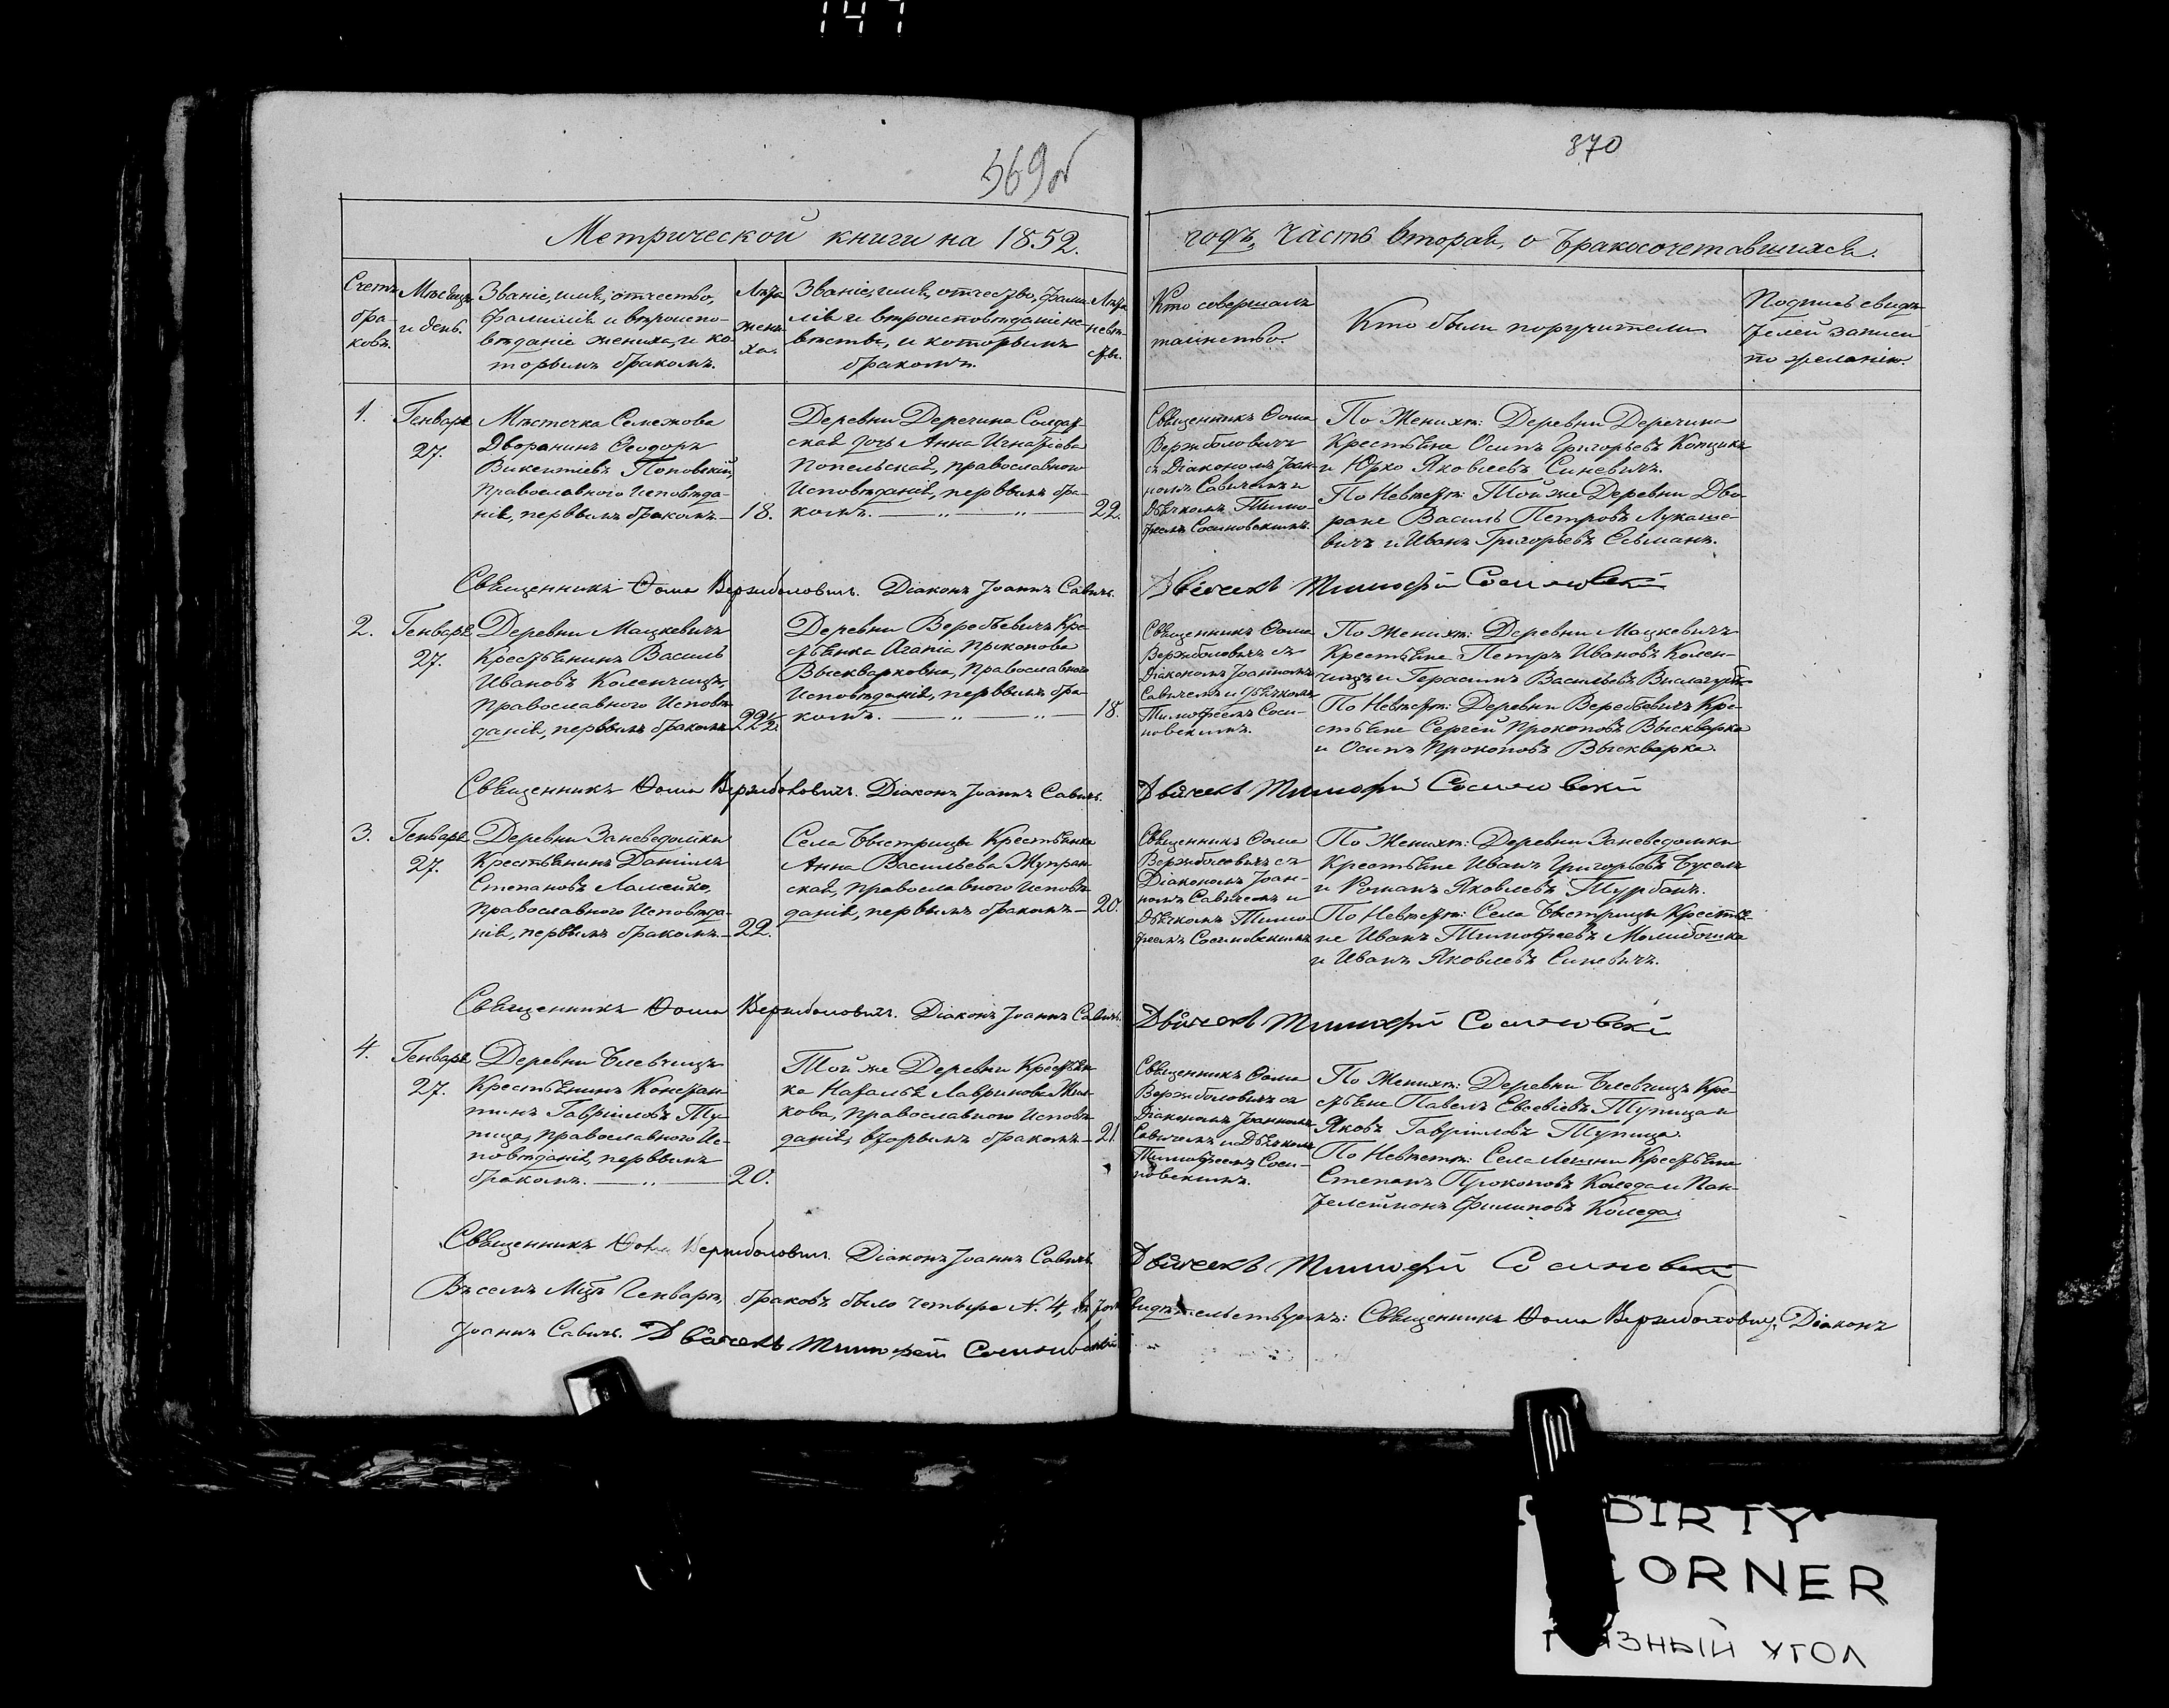 147
569об
370
Метрической книги на 1852.
годъ, часть вторая, о бракосочетавшихся.
Счетъ
бра-
ковъ.
Мѣсяцъ
и день.
Званіе, имя, отчество,
фамилія и вѣроиспо-
вѣданіе жениха, и ко-
торымъ бракомъ.
Лѣта
жени-
ха.
Званіе, имя, отчество, фами-
лія и вѣроисповѣданіе не-
вѣсты, и которымъ
бракомъ.
Лѣта
невѣ-
сты.
Кто совершалъ
таинство.
Кто были поручители
Подпись свидѣ-
телей записи
по желанію.
1.
Генваря
27.
Мѣстечка Семежова
Дворянинъ Ѳеодоръ
Викентіевъ Поповскій,
Православного Исповѣда-
нія, первымъ бракомъ
18.
Деревни Деречина Солдат-
ская дочь Анна Игнатіева
Попельская, православного
Исповѣданія, первымъ бра-
комъ.
22.
Священникъ Ѳома
Вержболовичъ
съ Діакономъ Іоан-
номъ Савичемъ и
Дьячкомъ Тимо-
феемъ Сосиновскимъ.
По Женихѣ: Деревни Деречина
Крестьяне Осипъ Григорьевъ Копцикъ
и Юрко Яковлевъ Синевичъ.
По Невѣстѣ: Той же Деревни Дво-
ряне Василь Петровъ Лукаше-
вичъ и Иванъ Григорьевъ Сельманъ.
Священникъ Ѳома Вержболовичъ. Діаконъ Іоаннъ Савичъ.
Дьячекъ Тимофей Сосиновскій
2.
Генваря
27.
Деревни Мацкевичъ
Крестьянинъ Василь
Ивановъ Коленчицъ,
Православного Исповѣ-
данія, первымъ бракомъ
22½.
Деревни Веребьевичъ Кре-
стьянка Агата Прокопова
Выскварковна, Православного
Исповѣданія, первымъ бра-
комъ.
18.
Священникъ Ѳома
Вержболовичъ съ
Діакономъ Іоанномъ
Савичемъ и Дьячкомъ
Тимофеемъ Соси-
новскимъ.
По Женихѣ: Деревни Мацкевичъ
Крестьяне Петръ Ивановъ Колен-
чицъ и Герасимъ Васильевъ
По Невѣстѣ: Деревни Веребьевичъ Кре-
стьяне Сергей Прокоповъ Выскварка
и Осипъ Прокоповъ Выскварка.
Священникъ Ѳома Вержболовичъ. Діаконъ Іоаннъ Савичъ.
Дьячекъ Тимофей Сосиновскій
3.
Генваря
27.
Деревни Заневедомки
Крестьянинъ Даніилъ
Степановъ Ламейко,
Православного Исповѣда-
нія, первымъ бракомъ
22.
Села Быстрицы Крестьянка
Анна Васильева Жупран-
ская, православного Исповѣ-
данія, первымъ бракомъ
20.
Священникъ Ѳома
Вержболовичъ съ
Діакономъ Іоан-
номъ Савичемъ и
Дьячкомъ Тимо-
феемъ Сосиновскимъ
По Женихѣ: Деревни Заневедомки
Крестьяне Иванъ Григорьевъ Буселъ
и Романъ Яковлевъ Турбанъ.
По Невѣстѣ: Села Быстрицы Крестья-
не Иванъ Тимофеевъ Молибошка
и Иванъ Яковлевъ Синевичъ.
Священникъ Ѳома Вержболовичъ. Діаконъ Іоаннъ Савичъ.
Дьячекъ Тимофей Сосиновскій
4.
Генваря
27.
Деревни Блевчицъ
Крестьянинъ Констан-
тинъ Гавріиловъ Ту-
пица, православного Ис-
повѣданія, первымъ
бракомъ.
20.
Той же Деревни Крестьян-
ка Наталья Лавринова Жил-
кова, православного Исповѣ-
данія, вторымъ бракомъ
21.
Священникъ Ѳома
Вержболовичъ съ
Діакономъ Іоанномъ
Савичемъ и Дьячкомъ
Тимофеемъ Соси-
новскимъ.
По Женихѣ: Деревни Блевчицъ Кре-
стьяне Павелъ Евсевіевъ Тупица и
Яковъ Гавріиловъ Тупица.
По Невѣстѣ: Села Лешни Крестьяне
Степанъ Прокоповъ Коледа и Пан-
телеймонъ Филиповъ Коледа.
Священникъ Ѳома Вержболовичъ. Діаконъ Іоаннъ Савичъ.
Дьячекъ Тимофей Сосиновскій
Въ семъ Мцѣ Генварѣ, браковъ было четыре N. 4, въ томъ свидѣтельствуемъ: Священникъ Ѳома Вержболовичъ, Діаконъ
Іоаннъ Савичъ. Дьячекъ Тимофей Сосиновскій
DIRTY
CORNER
ГРЯЗНЫЙ УГОЛ